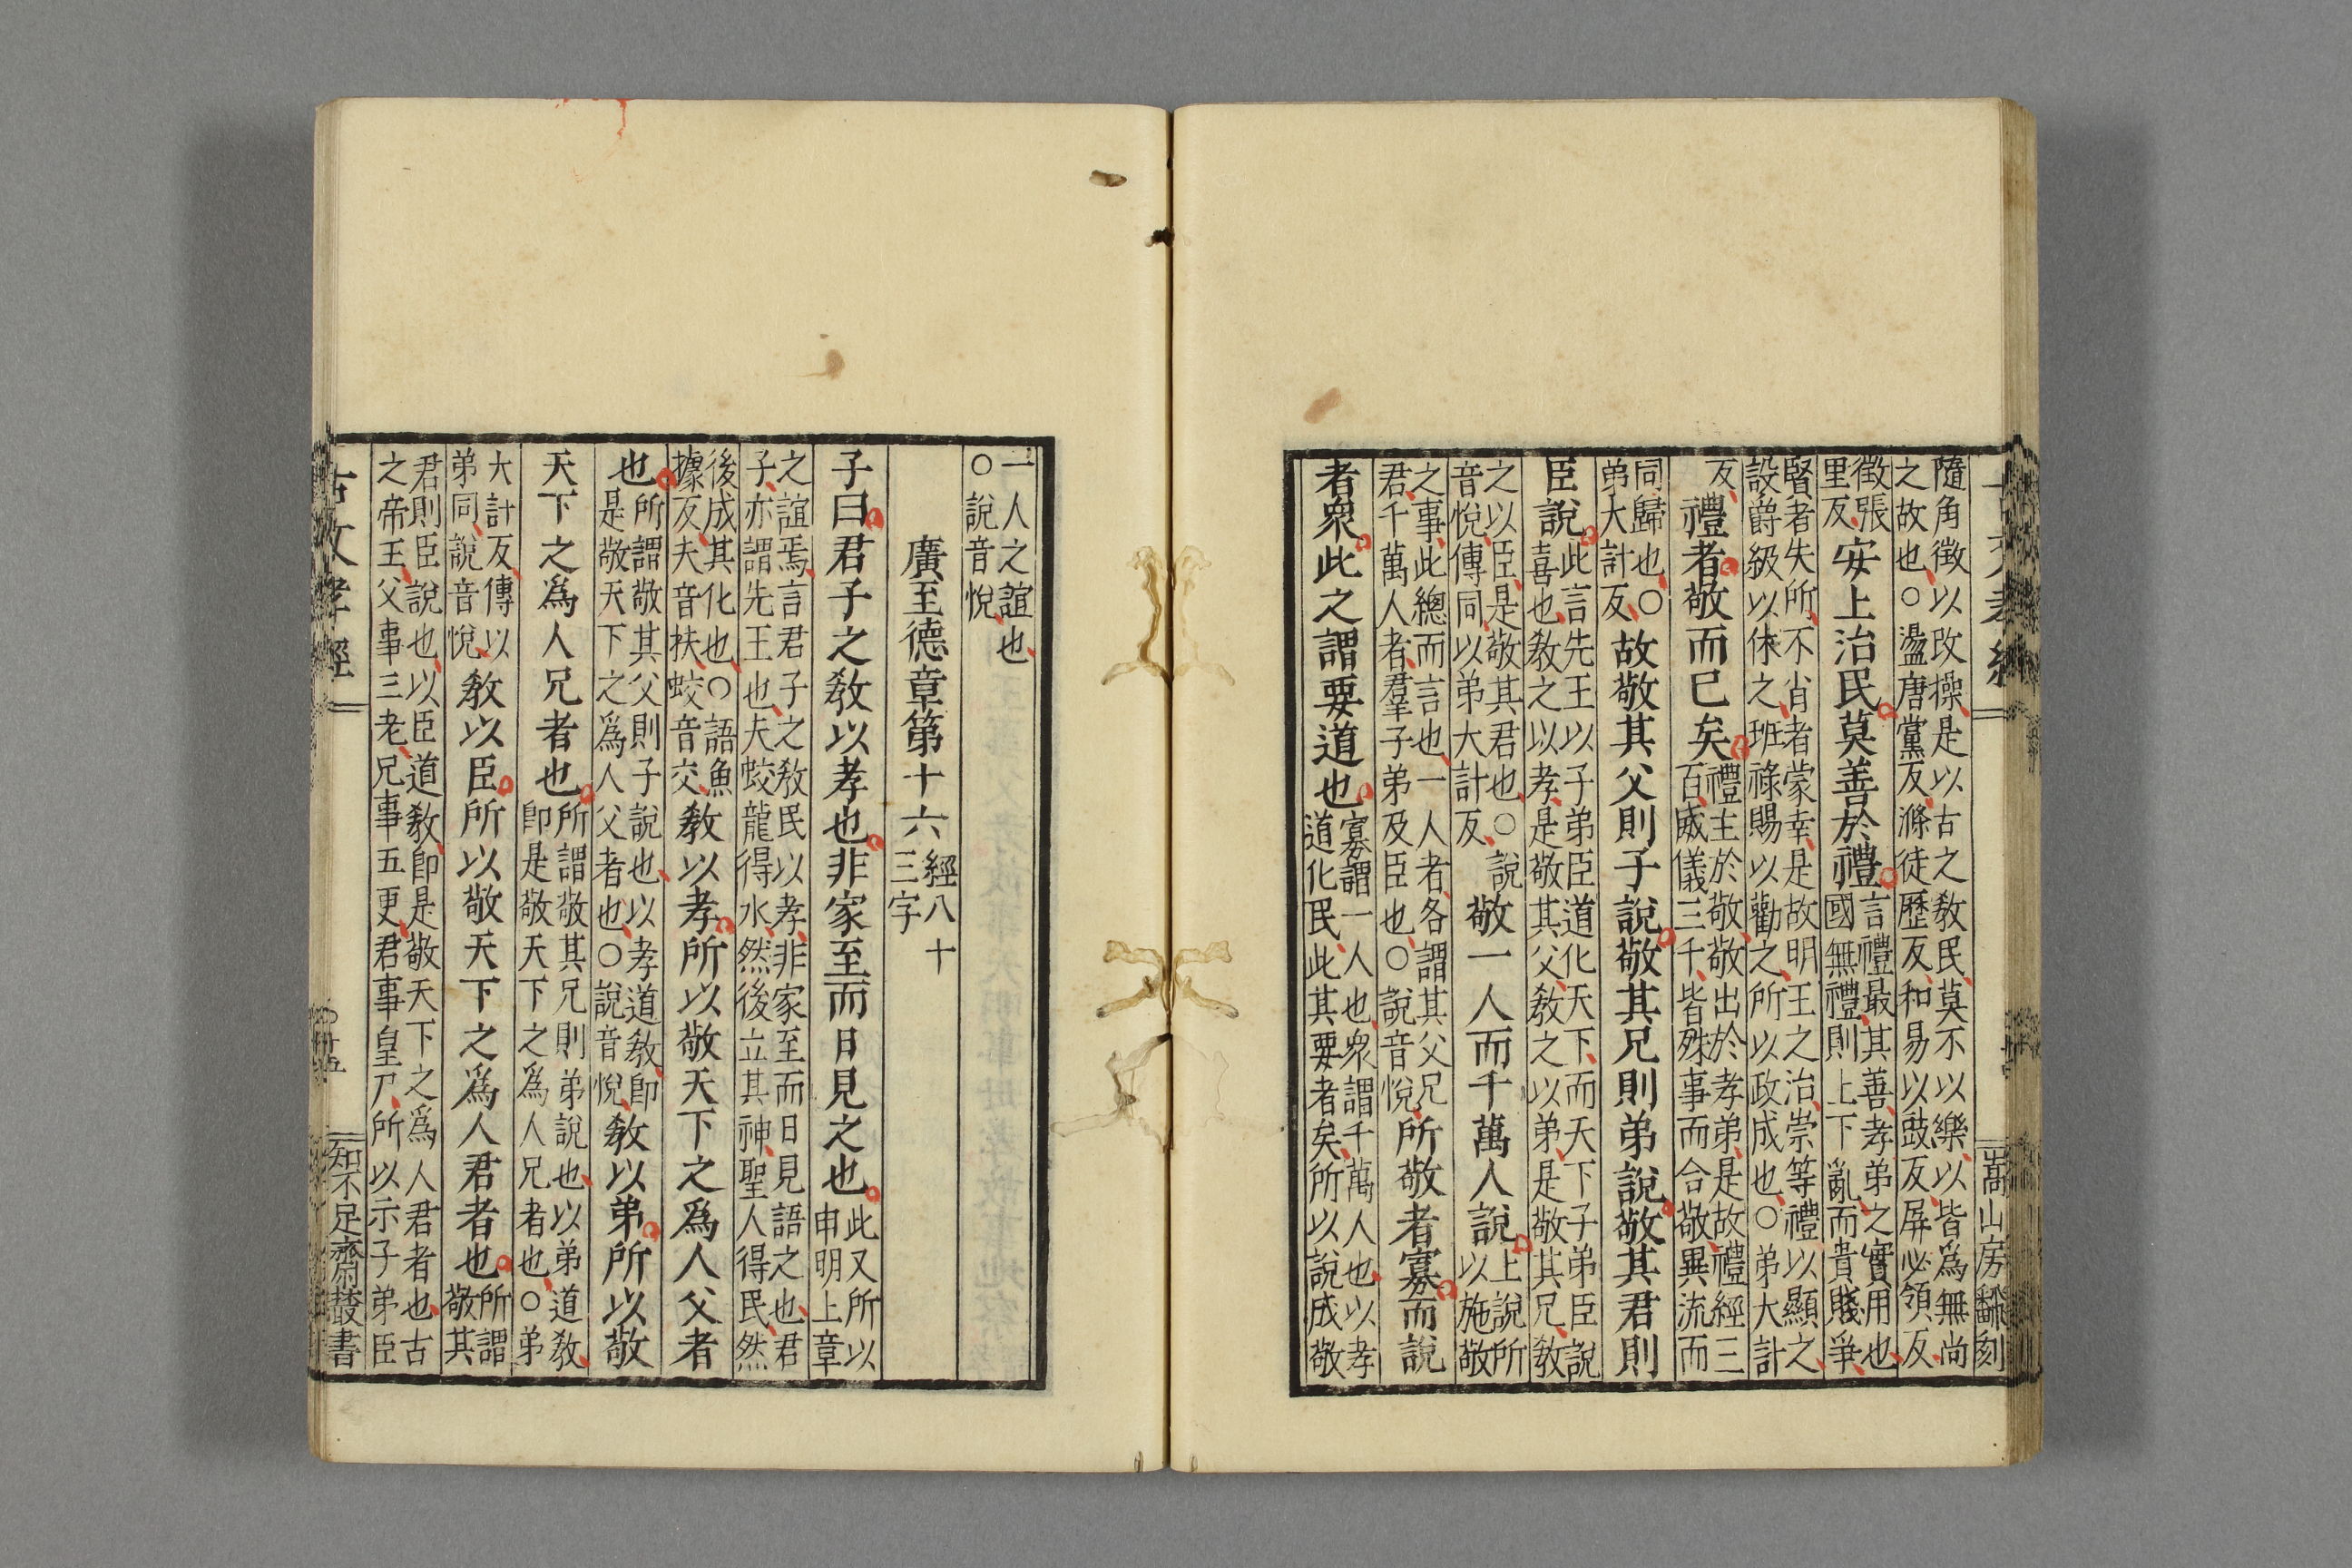 古文孝經
嵩山房飜刻
隨角徵以改操是以古之教民莫不以樂以皆爲無尚
之故也○盪唐黨反滌徒歷反和易以豉反屏必領反
徵張
里反
安上治民莫善於禮
言禮最其善孝弟之實用也
國無禮則上下亂而貴賤爭
賢者失所不肖者蒙幸是故明王之治崇等禮以顯之
設爵級以休之班祿賜以勸之所以政成也○弟大計
反
禮者敬而已矣
禮主於敬敬出於孝弟是故禮經三
百威儀三千皆殊事而合敬異流而
同歸也○
弟大計反
故敬其父則子說敬其兄則弟說敬其君則
臣說
此言先王以子弟臣道化天下而天下子弟臣說
喜也教之以孝是敬其父教之以弟是敬其兄教
之以臣是敬其君也○說
音悅傳同以弟大計反
敬一人而千萬人說
上說所
以施敬
之事此總而言也一人者各謂其父兄
君千萬人者羣子弟及臣也○說音悅
所敬者寡而說
者衆此之謂要道也
寡謂一人也衆謂千萬人也以孝
道化民此其要者矣所以說成敬
一人之誼也
○說音悅
廣至德章第十六
經八十
三字
子曰君子之教以孝也非家至而日見之也
此又所以
申明上章
之誼焉言君子之教民以孝非家至而日見語之也君
子亦謂先王也夫蛟龍得水然後立其神聖人得民然
後成其化也○語魚
據反夫音扶蛟音交
教以孝所以敬天下之爲人父者
也
所謂敬其父則子說也以孝道教卽
是敬天下之爲人父者也○說音悅
教以弟所以敬
天下之爲人兄者也
所謂敬其兄則弟說也以弟道教
卽是敬天下之爲人兄者也○弟
大計反傳以
弟同說音悅
教以臣所以敬天下之爲人君者也
所謂
敬其
君則臣說也以臣道教卽是敬天下之爲人君者也古
之帝王父事三老兄事五更君事皇尸所以示子弟臣
古文孝經
十五
知不足齋叢書